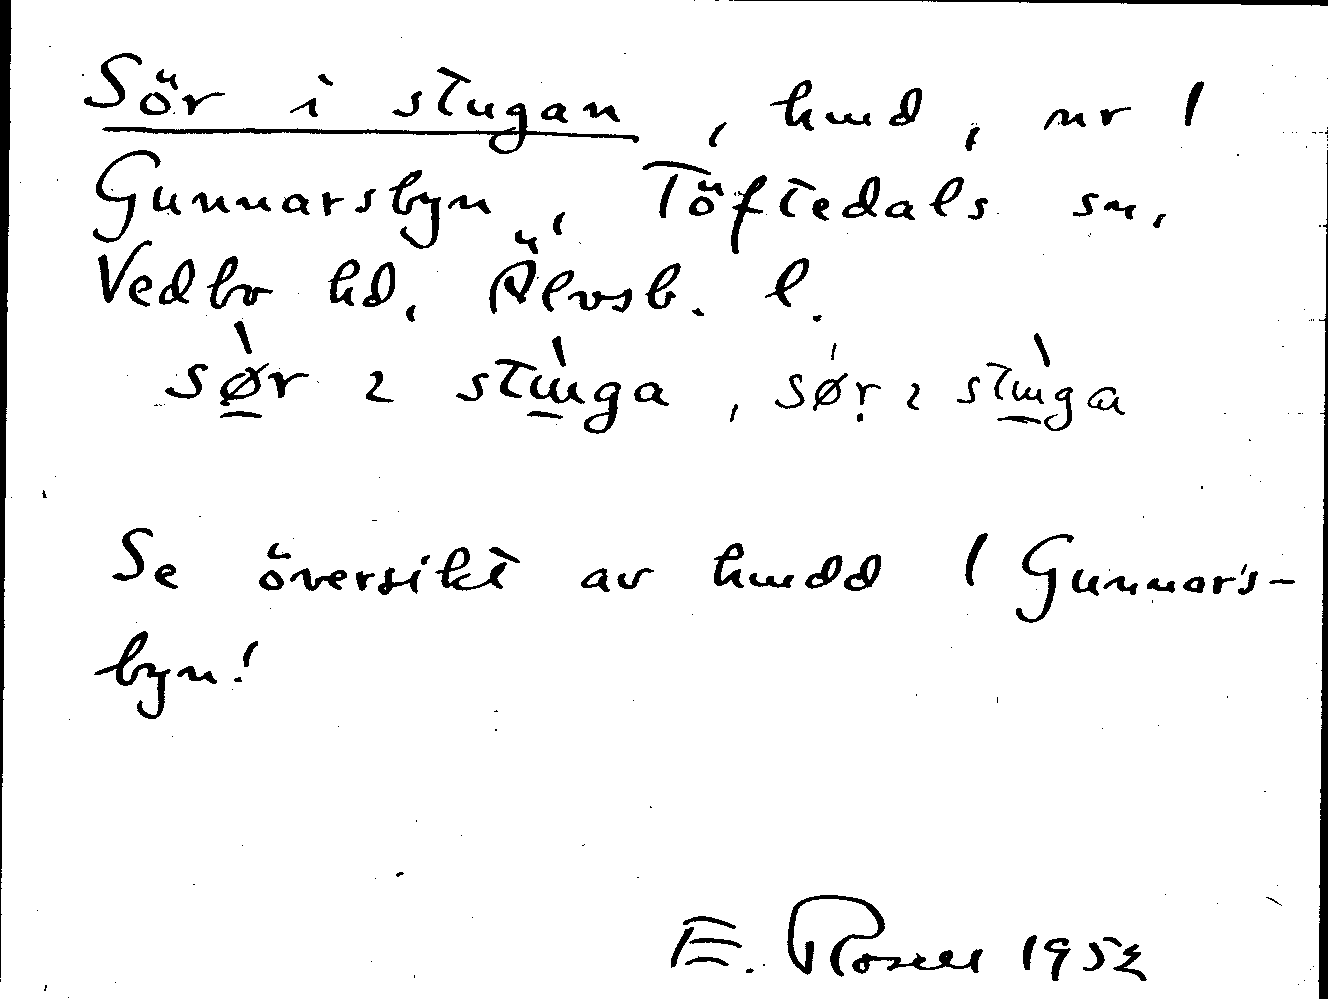 Sör i stugan, hmd, nr 1
Gunnarsbyn, Töftedals sn,
Vedbo hd, Älvsb. l.
sø̱̀r ɩ stɯ̱̀ga, sǿṛ ɩ stɯ̱̀ga
Se översikt av hmdd 1 Gunnars-
byn!
E. Rosell 1952